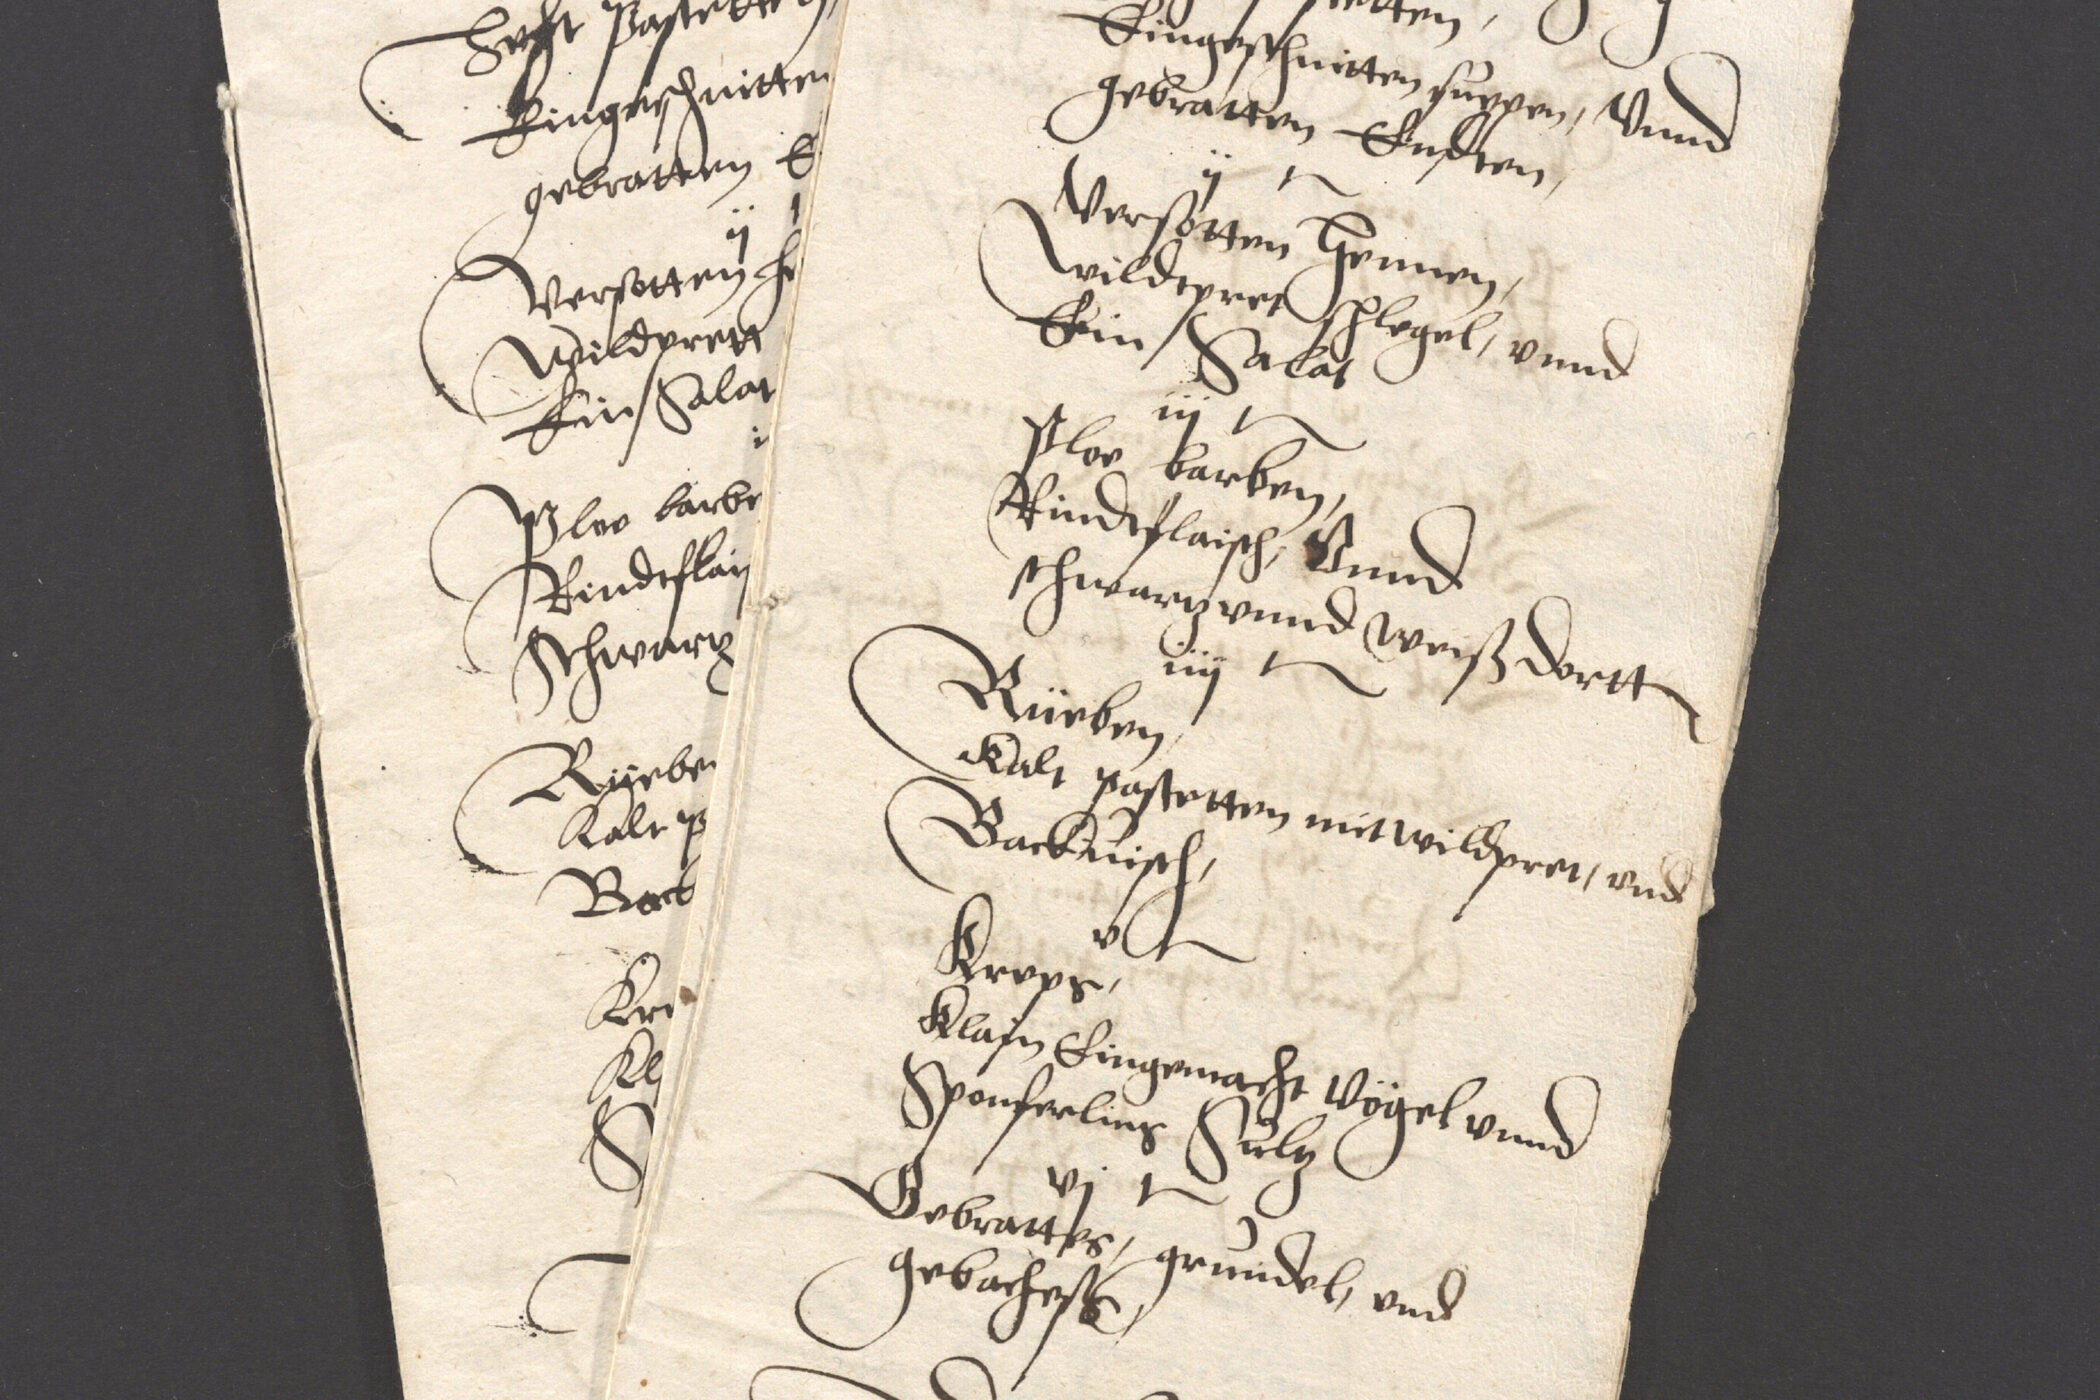 Hecht Pastetten,
Eingeschnitten
gebratten E
ij
Versotten he
Wildprett
Ein Salat
Ploe barbe
Rindtflai
Schwartz
Rüebe
Kalt P
Back
Kre
Kl
S
Eingeschnitten suppen, Vnnd
gebratten Endten,
ij
Versotten Hennen,
wildtpret schlegel, vnnd
Ein Salat
iij
Ploe barben,
Rindtflaisch, Vnnd
schwartz vnnd weiß dortt
iiij
Rüeben,
Kalt pastetten mit wildpret, vnd
Backvisch,
v
Kreps,
Klain Eingemacht Vögel vnnd
Sponferling Sultz
vj
Gebrattes, grundel, vnd
gebacheß,